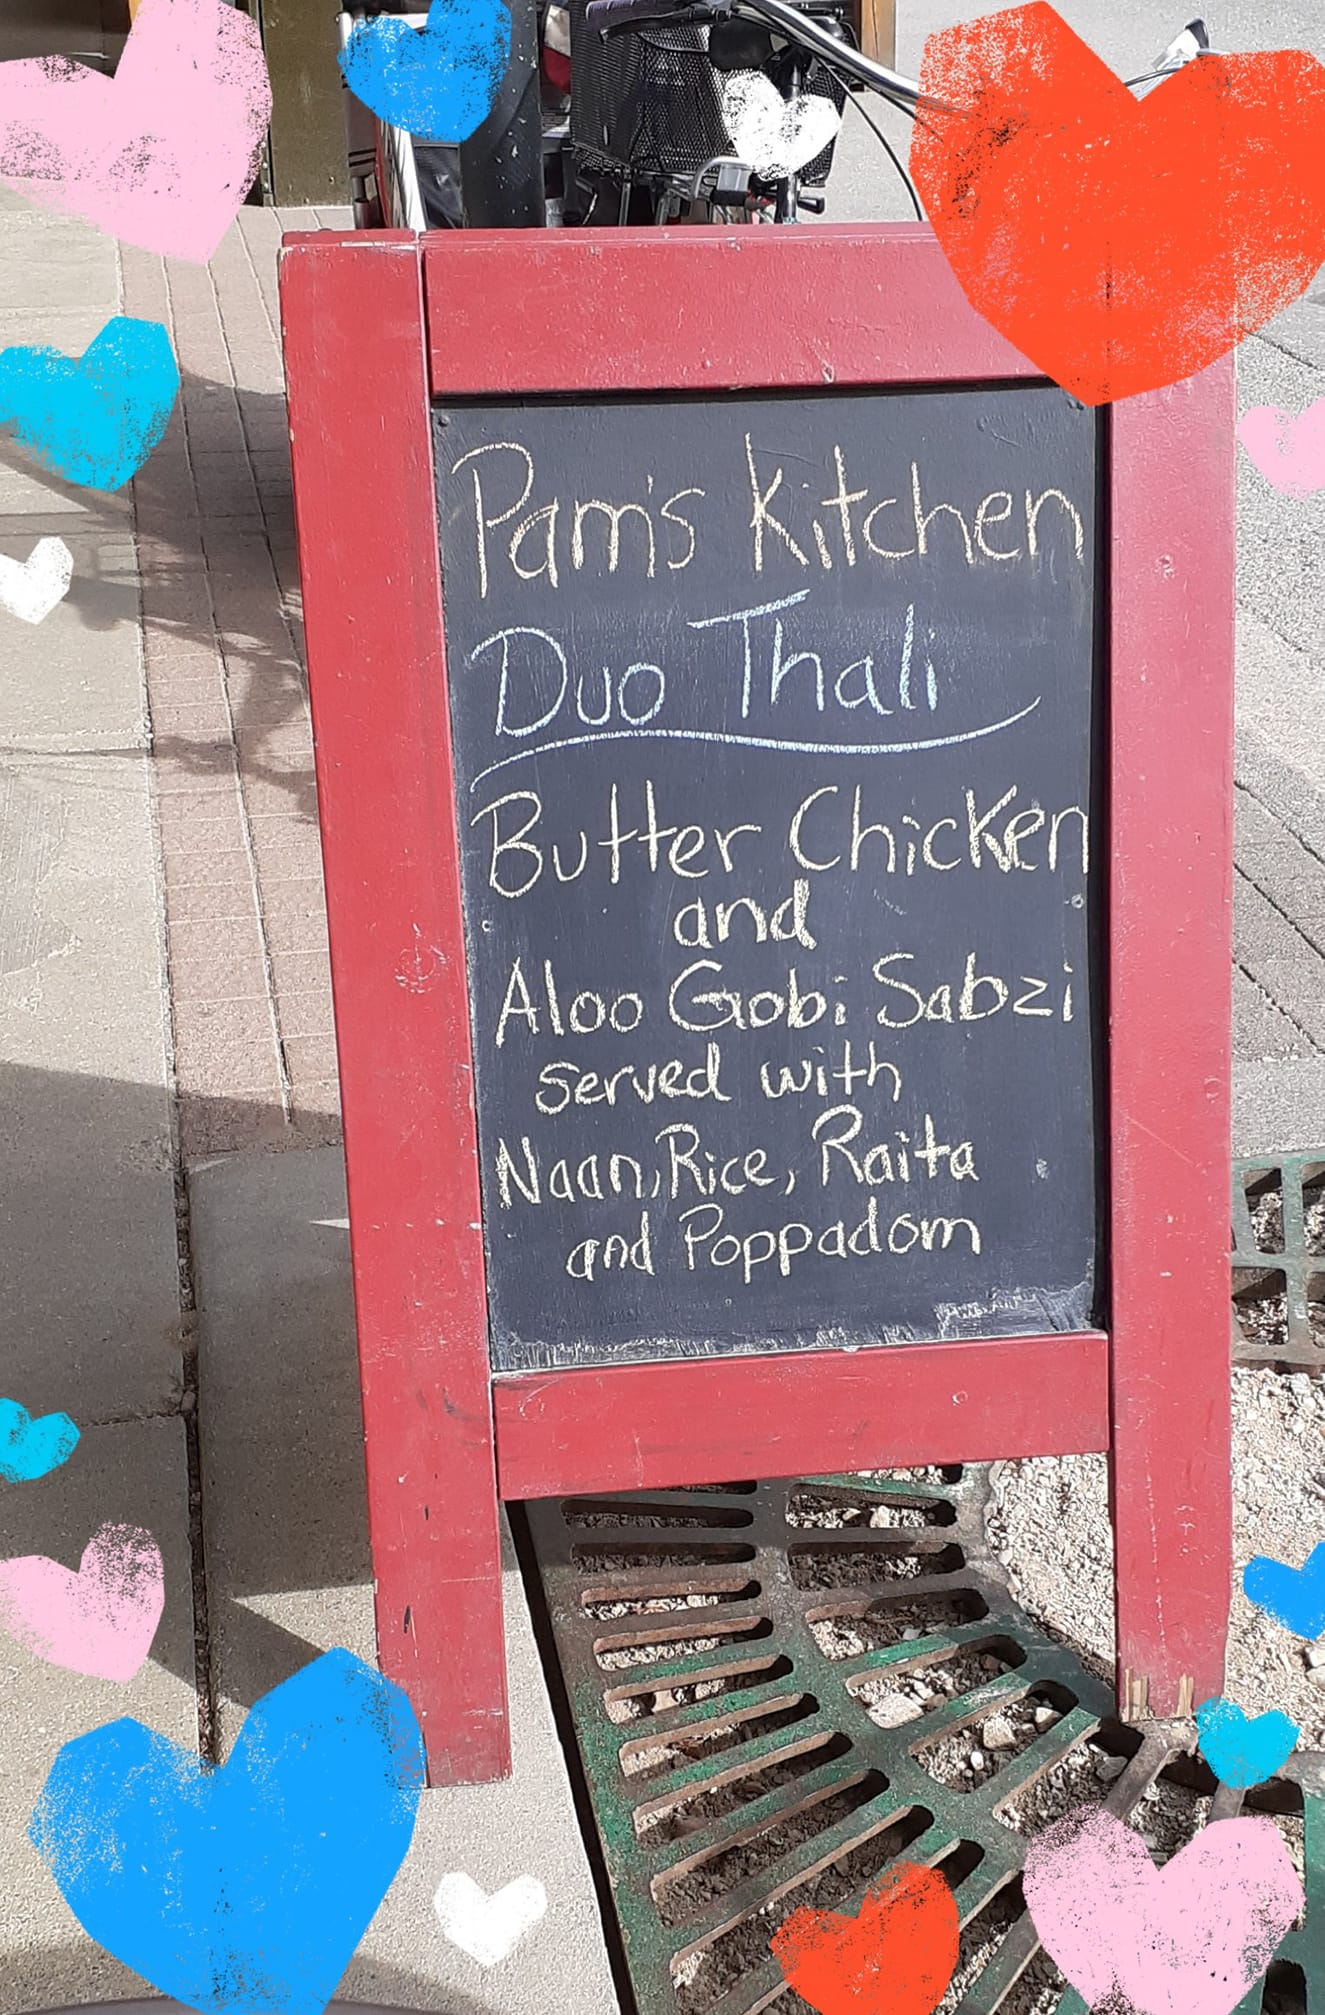 Pam's Kitchen
Duo Thali
Butter Chicken
and
Aloo Gobi Sabzi
served with
Naan, Rice, Raita
and Poppadom